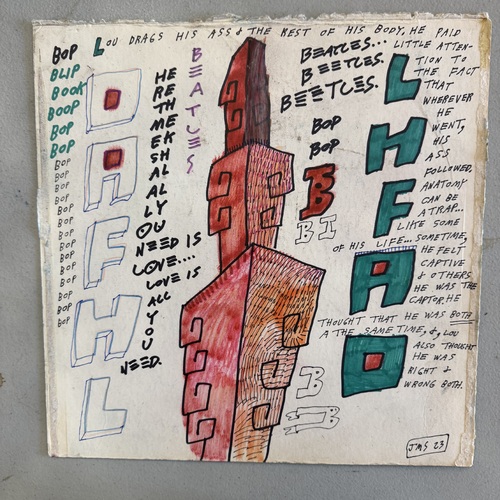 LOU DRAGS HIS ASS & THE REST OF HIS BODY, HE PAID
LITTLE ATTEN-
TION TO
THE FACT
THAT
WHEREVER
HE
WENT,
HIS
ASS
FOLLOWED,
ANATOMY
CAN BE
A TRAP...
LIKE SOME
OF HIS LIFE... SOMETIME,
HE FELT
CAPTIVE
& OTHERS
HE WAS THE
CAPTOR. HE
THOUGHT THAT HE WAS BOTH
A THE SAME TIME, &, LOU
ALSO THOUGHT
HE WAS
RIGHT &
WRONG BOTH.
BOP
BLIP
BOOK
BOOP
BOP
BOP
BOP
BOP
BOP
BOP
BOP
BOP
BOP
BOP
BOP
BOP
BOP
BOP
BOP
BOP
O
A
F
H
L
HE
RE
TH
EM
EK
SH
AL
AL
LY
YOU
NEED IS
LOVE....
LOVE IS
ALL
YOU
NEED.
BEATLES
BEATLES...
BEETLES.
BEETLES.
BOP
BOP
B
B
BI
B
B
L
H
F
A
O
JMS 23